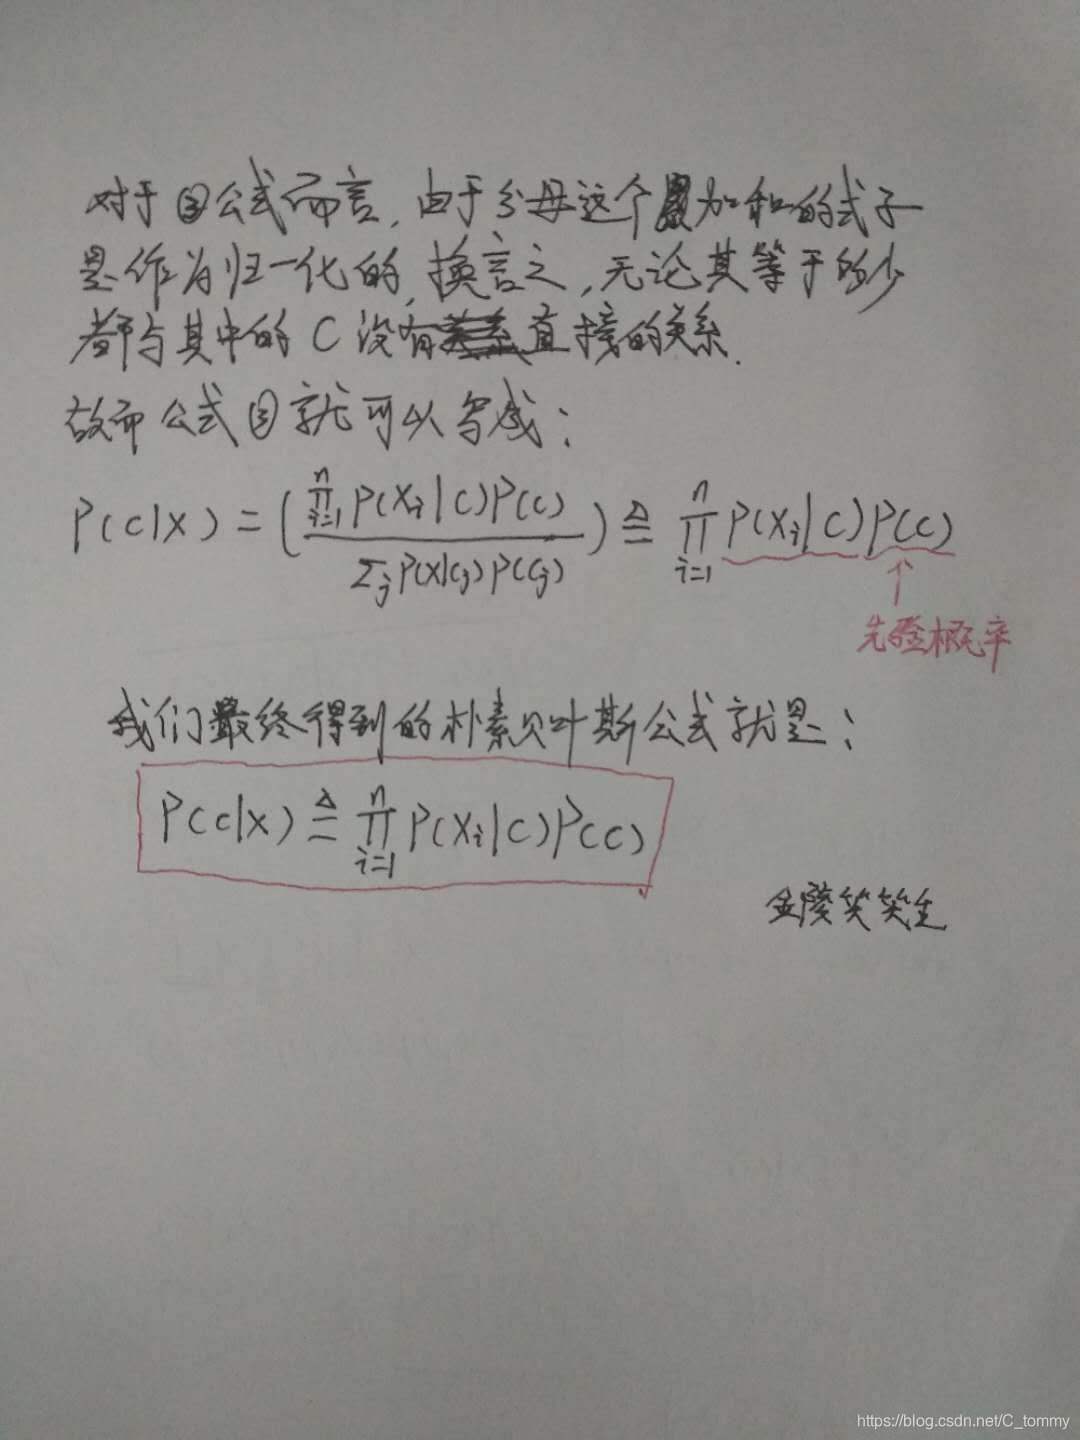 对于③公式而言,由于分母这个累加和的式子
是作为归一化的,换言之,无论其等于多少
都与其中的C没有直接的关系.
故而公式③就可以写成:
P(C|X) = (∏ⁿᵢ₌₁ P(Xᵢ|C)P(C) / Σⱼ P(X|Cⱼ)P(Cⱼ)) ≜ ∏ⁿᵢ₌₁ P(Xᵢ|C)P(C)
↑
先验概率
我们最终得到的朴素贝叶斯公式就是:
P(C|X) ≜ ∏ⁿᵢ₌₁ P(Xᵢ|C)P(C)
金陵笑笑生
https://blog.csdn.net/C_tommy